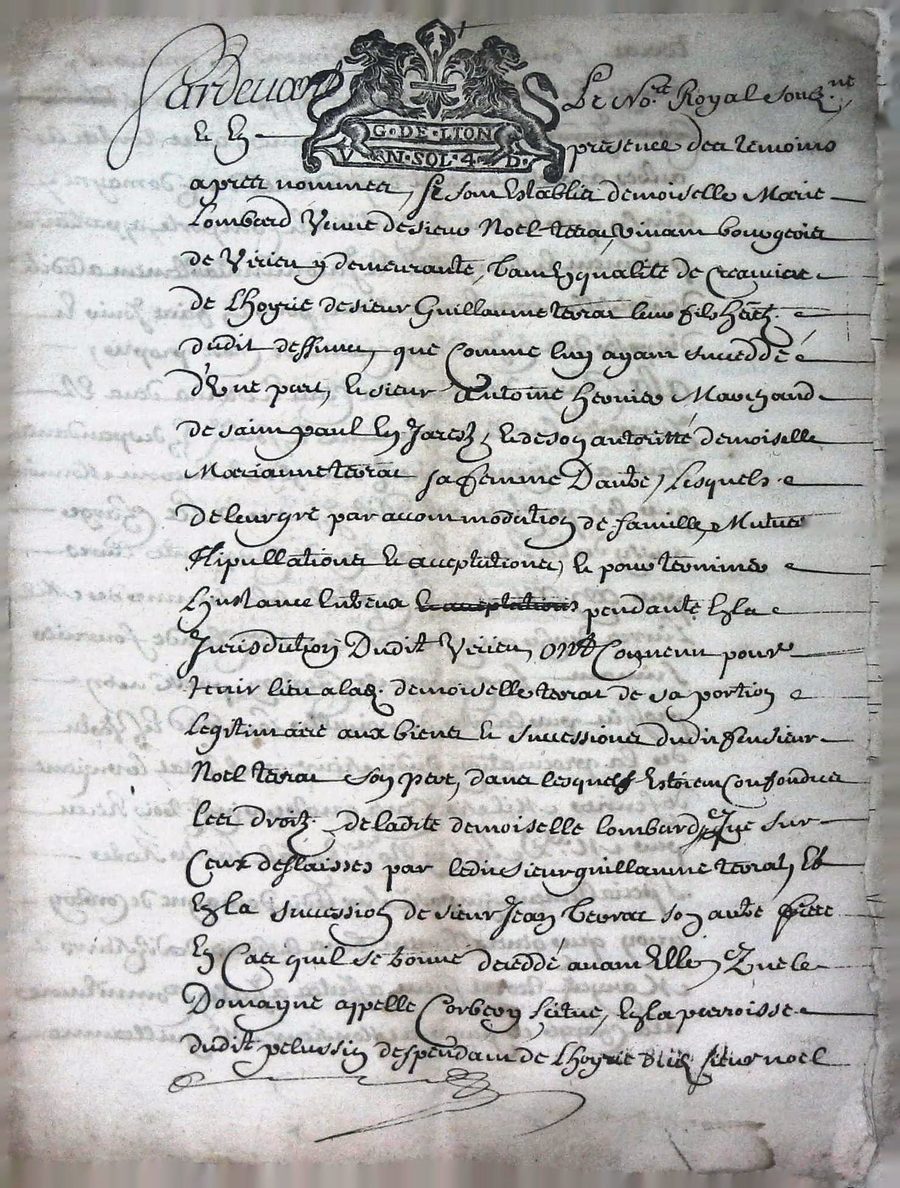 Pardevant Le No.re Royal soub.né
G·DE·LION
VN·SOL·4·D·
& en presence des temoins
apres nommes, se sont establis demoiselle Marie
Lombard Veuve de sieur Noel terrat, vivant bourgeois
de Virieu y demeurante, tant en qualité de creanciere
de Lhoyrie de sieur Guillaume terrat leur fils
dudit deffunt, que Comme luy ayant succeddé
d'Une part, & sieur Antoine Marchand
de saint paul En Jarest, & de son autoritté demoiselle
Marianne terrat sa femme Dautre, Lesquels
de leur gré par accommodation de famille, Mutues
stipullations & acceptations, & pour terminer
Linstance Entreux pendante En la
Jurisdiction Dudit Virieu, ont Convenu pour
tenir lieu a lad. demoiselle terrat de sa portion
Legitimaire aux biens & successions dudit feu sieur
Noel terrat son pere, dans lesquels Estoient Confondus
Les droitz de ladite demoiselle lombard, que sur
Ceux deslaisses par ledit sieur guillaume terrat, Et
En la succession de sieur Jean terrat son autre frere
En Cas quil se trouve deceddé avant Elle, le
Domayne appellé Corbery scitué, En la parroisse
dudit pelussin despendant de Lhoyrie dud. sieur noel